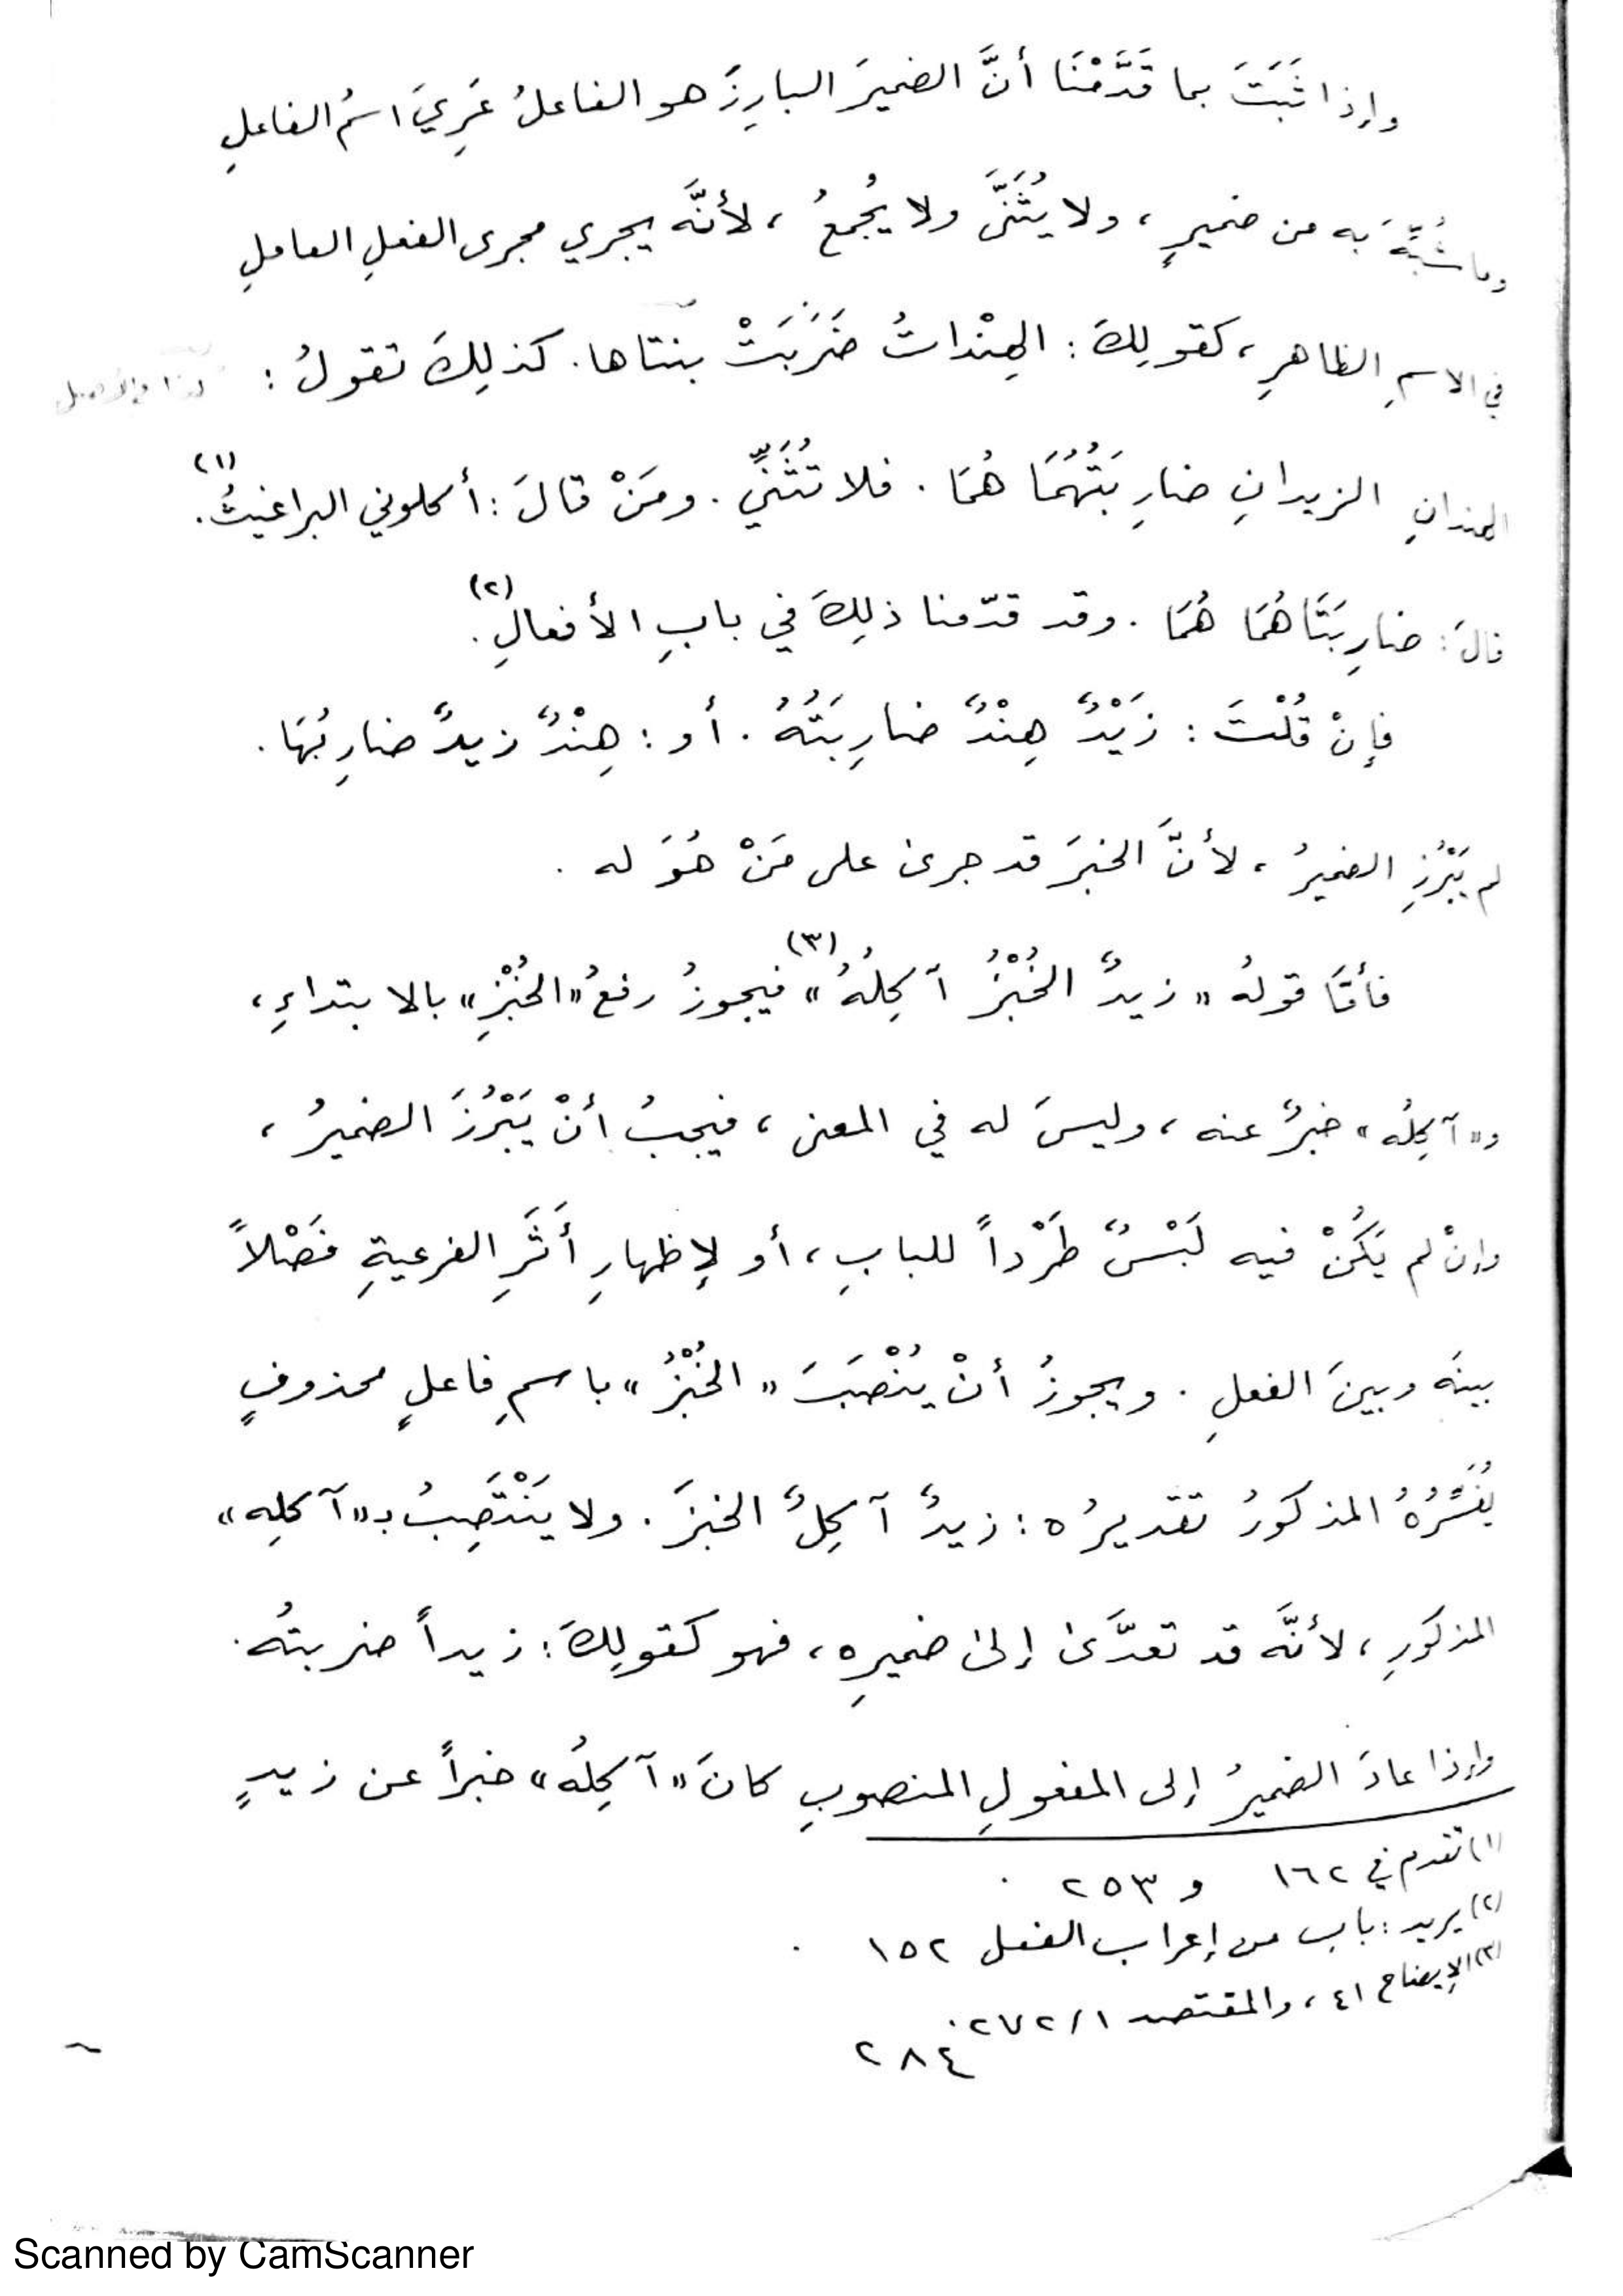 وإذا ثَبَتَ بما قَدَّمْنَا أنَّ الضميرَ البارِزَ هو الفاعلُ عَرِيَ اسمُ الفاعلِ
وما شُبِّهَ به من ضميرٍ ، ولا يُثَنَّى ولا يُجمعُ ، لأنَّه يجري مجرى الفعلِ العاملِ
في الاسمِ الظاهرِ ، كقولِكَ : الهِنْداتُ ضَرَبَتْ بنتاها . كذلِكَ تقولُ :
الهندانِ الزيدانِ ضارِبَتُهُمَا هُمَا . فلا تُثَنِّي . ومَنْ قالَ : أكلوني البراغيثُ(١) .
قالَ : ضارِبَتَاهُمَا هُمَا . وقد قدّمنا ذلِكَ في بابِ الأفعالِ(٢) .
فإنْ قُلْتَ : زَيْدٌ هِنْدٌ ضارِبَتُهُ . أو : هِنْدٌ زيدٌ ضارِبُهَا .
لم يَبْرُزِ الضميرُ ، لأنَّ الخبرَ قد جرى على مَنْ هُوَ له .
فأمَّا قولُه « زيدٌ الخُبْزُ آكِلُهُ »(٣) فيجوزُ رفعُ « الخُبْزِ » بالابتداءِ ،
و « آكِلُه » خبرٌ عنه ، وليسَ له في المعنى ، فيجبُ أنْ يَبْرُزَ الضميرُ ،
وإنْ لم يَكُنْ فيه لَبْسٌ طَرْداً للبابِ ، أو لإظهارِ أَثَرِ الفرعيةِ فَصْلاً
بينَه وبينَ الفعلِ . ويجوزُ أنْ يُنْصَبَ « الخُبْزُ » باسمِ فاعلٍ محذوفٍ
يُفَسِّرُهُ المذكورُ تقديرُه : زيدٌ آكِلٌ الخبزَ . ولا يَنْتَصِبُ بـ « آكلِه »
المذكورِ ، لأنَّه قد تعدَّى إلى ضميرِه ، فهو كقولِكَ : زيداً ضربتُه .
وإذا عادَ الضميرُ إلى المفعولِ المنصوبِ كانَ « آكِلُه » خبراً عن زيدٍ
(١) تقدم في ١٦٢ و ٢٥٣ .
(٢) يريد : باب من إعراب الفعل ١٥٢ .
(٣) الإيضاح ٤١ ، والمقتصد ١/٢٧٢ .
٢٨٤
Scanned by CamScanner